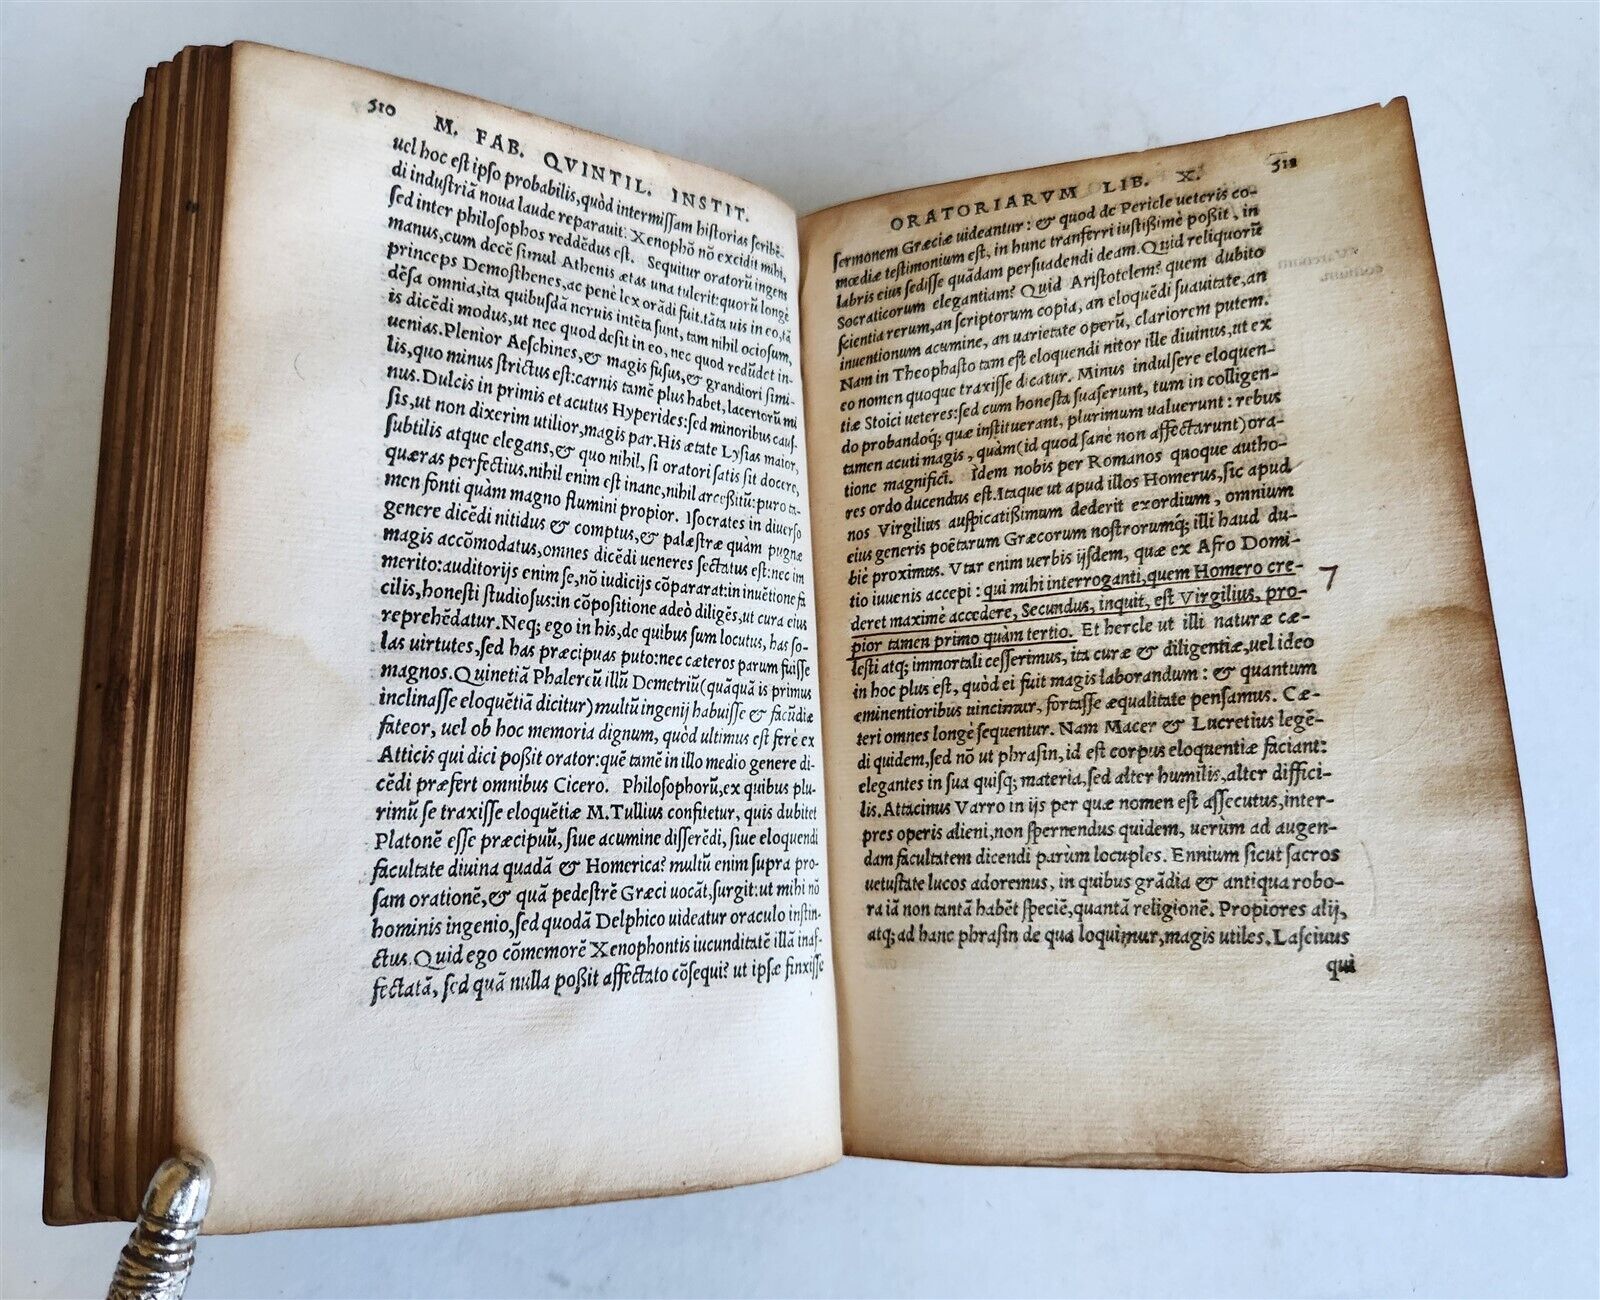 510
M. FAB. QVINTIL. INSTIT.
uel hoc est ipso probabilis, quòd intermissam historias scribē-
di industriā noua laude reparauit. Xenophō nō excidit mihi,
sed inter philosophos reddēdus est. Sequitur oratorū ingens
manus, cum decē simul Athenis ætas una tulerit: quorū longè
princeps Demosthenes, ac penè lex orādi fuit. tāta uis in eo, tā
dēsa omnia, ita quibusdā neruis intēta sunt, tam nihil ociosum,
is dicēdi modus, ut nec quod desit in eo, nec quod redūdet in-
uenias. Plenior Aeschines, & magis fusus, & grandiori simi-
lis, quo minus strictus est: carnis tamē plus habet, lacertorū mi
nus. Dulcis in primis et acutus Hyperides: sed minoribus cauf-
sis, ut non dixerim utilior, magis par. His ætate Lysias maior,
subtilis atque elegans, & quo nihil, si oratori satis sit docere,
quæras perfectius. nihil enim est inane, nihil arcessitū: puro ta-
men fonti quàm magno flumini propior. Isocrates in diuerso
genere dicēdi nitidus & comptus, & palæstræ quàm pugnæ
magis accōmodatus, omnes dicēdi ueneres sectatus est: nec im
merito: auditorijs enim se, nō iudicijs cōpararat: in inuētione fa
cilis, honesti studiosus: in cōpositione adeò diligēs, ut cura eius
reprehēdatur. Neq; ego in his, de quibus sum locutus, has so-
las uirtutes, sed has præcipuas puto: nec cæteros parum fuisse
magnos. Quinetiā Phalereū illū Demetriū (quāquā is primus
inclinasse eloquētiā dicitur) multū ingenij habuisse & facūdiæ
fateor, uel ob hoc memoria dignum, quòd ultimus est ferè ex
Atticis qui dici poßit orator: quē tamē in illo medio genere di-
cēdi præfert omnibus Cicero. Philosophorū, ex quibus plu-
rimū se traxisse eloquētiæ M. Tullius confitetur, quis dubitet
Platonē esse præcipuū, siue acumine disserēdi, siue eloquendi
facultate diuina quadā & Homerica? multū enim supra pro-
sam orationē, & quā pedestrē Græci uocāt, surgit: ut mihi nō
hominis ingenio, sed quodā Delphico uideatur oraculo instin-
ctus. Quid ego cōmemorē Xenophontis iucunditatē illā inaf-
fectatā, sed quā nulla poßit affectato cōsequi? ut ipsæ finxisse
ORATORIARVM LIB. X.
511
sermonem Græciæ uideantur: & quod de Pericle ueteris co-
mœdiæ testimonium est, in hunc tranferri iustißimè poßit, in
labris eius sedisse quādam persuadendi deam. Quid reliquorū
Socraticorum elegantiam? Quid Aristotelem? quem dubito
scientia rerum, an scriptorum copia, an eloquēdi suauitate, an
inuentionum acumine, an uarietate operū, clariorem putem.
Nam in Theophasto tam est eloquendi nitor ille diuinus, ut ex
eo nomen quoque traxisse dicatur. Minus indulsere eloquen-
tiæ Stoici ueteres: sed cum honesta suaserunt, tum in colligen-
do probandoq; quæ instituerant, plurimum ualuerunt: rebus
tamen acuti magis, quàm (id quod sanè non affectarunt) ora-
tione magnifici. Idem nobis per Romanos quoque autho-
res ordo ducendus est. Itaque ut apud illos Homerus, sic apud
nos Virgilius auspicatißimum dederit exordium, omnium
eius generis poëtarum Græcorum nostrorumq; illi haud du-
biè proximus. Vtar enim uerbis ijsdem, quæ ex Afro Domi-
tio iuuenis accepi: qui mihi interroganti, quem Homero cre-
deret maximè accedere, Secundus, inquit, est Virgilius, pro-
pior tamen primo quàm tertio. Et hercle ut illi naturæ cæ-
lesti atq; immortali cesserimus, ita curæ & diligentiæ, uel ideo
in hoc plus est, quòd ei fuit magis laborandum: & quantum
eminentioribus uincimur, fortasse æqualitate pensamus. Cæ-
teri omnes longè sequentur. Nam Macer & Lucretius legē-
di quidem, sed nō ut phrasin, id est corpus eloquentiæ faciant:
elegantes in sua quisq; materia, sed alter humilis, alter diffici-
lis. Attacinus Varro in ijs per quæ nomen est assecutus, inter-
pres operis alieni, non spernendus quidem, uerùm ad augen-
dam facultatem dicendi parùm locuples. Ennium sicut sacros
uetustate lucos adoremus, in quibus grādia & antiqua robo-
ra iā non tantā habēt speciē, quantā religionē. Propiores alij,
atq; ad hanc phrasin de qua loquimur, magis utiles. Lasciuus
qui